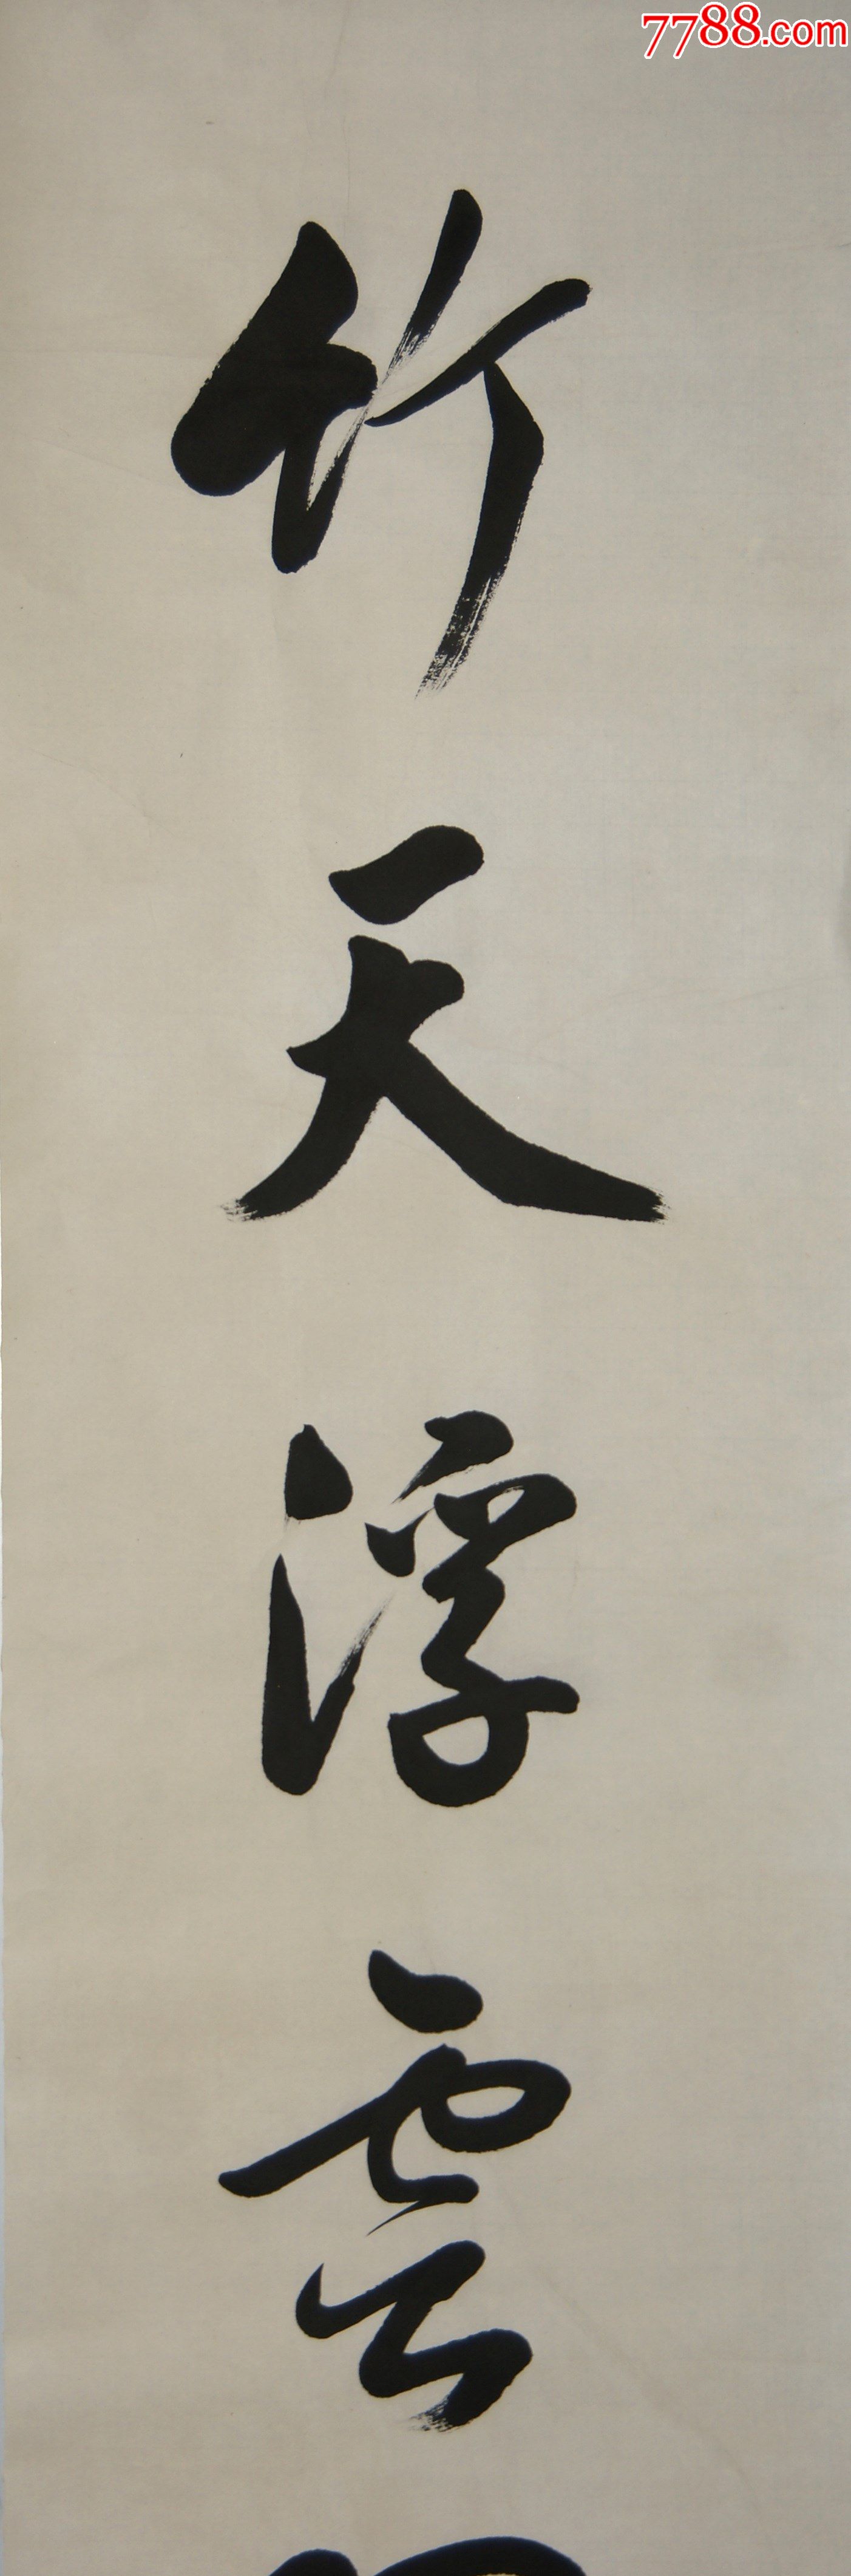 7788.com
竹天浮雲